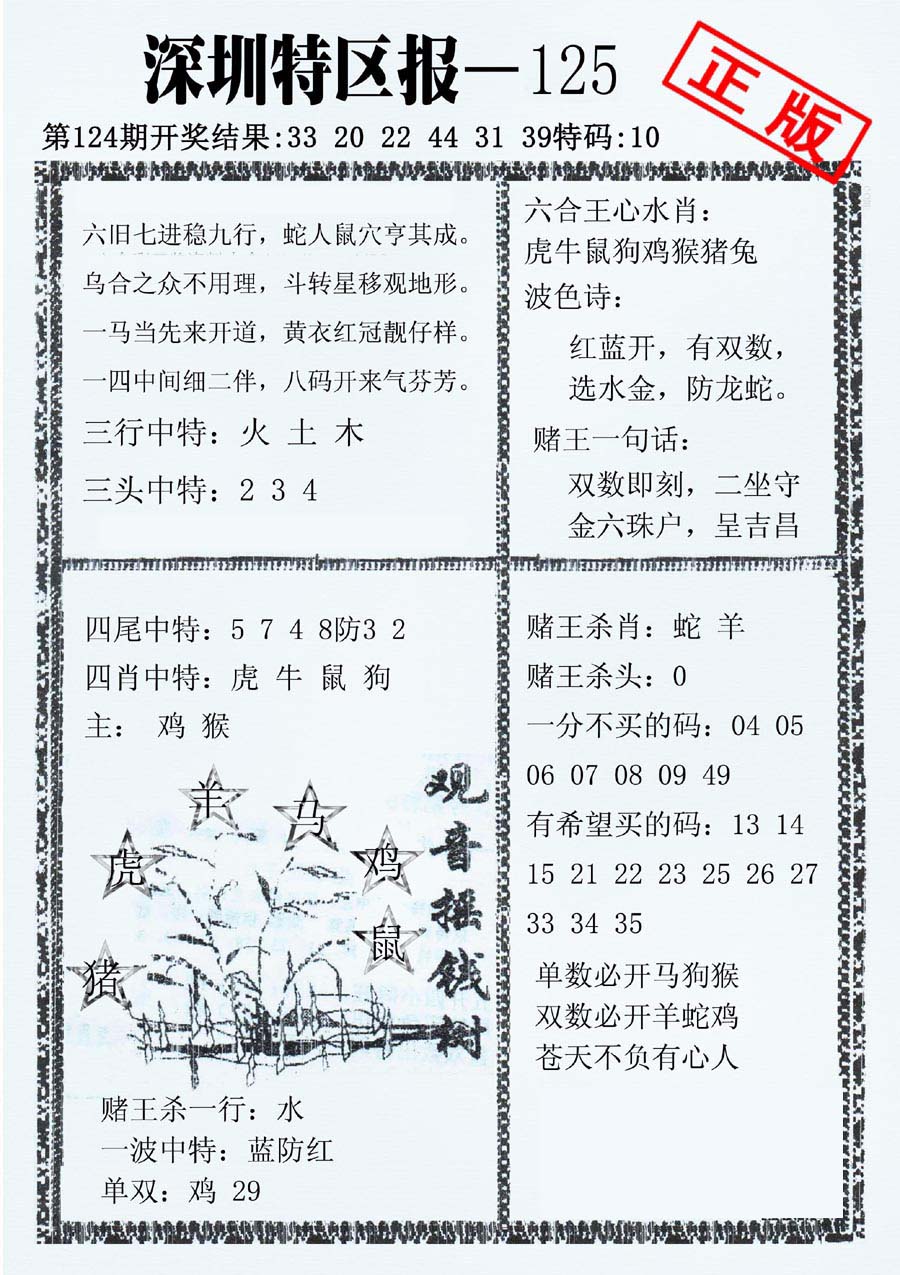 深圳特区报—125
正版
第124期开奖结果:33 20 22 44 31 39特码:10
六旧七进稳九行，蛇人鼠穴亨其成。
乌合之众不用理，斗转星移观地形。
一马当先来开道，黄衣红冠靓仔样。
一四中间细二伴，八码开来气芬芳。
三行中特：火 土 木
三头中特：2 3 4
六合王心水肖：
虎牛鼠狗鸡猴猪兔
波色诗：
红蓝开，有双数，
选水金，防龙蛇。
赌王一句话：
双数即刻，二坐守
金六珠户，呈吉昌
四尾中特：5 7 4 8防3 2
四肖中特：虎 牛 鼠 狗
主： 鸡 猴
羊
马
虎
鸡
鼠
猪
观音摇钱树
赌王杀一行：水
一波中特：蓝防红
单双：鸡 29
赌王杀肖：蛇 羊
赌王杀头：0
一分不买的码：04 05
06 07 08 09 49
有希望买的码：13 14
15 21 22 23 25 26 27
33 34 35
单数必开马狗猴
双数必开羊蛇鸡
苍天不负有心人